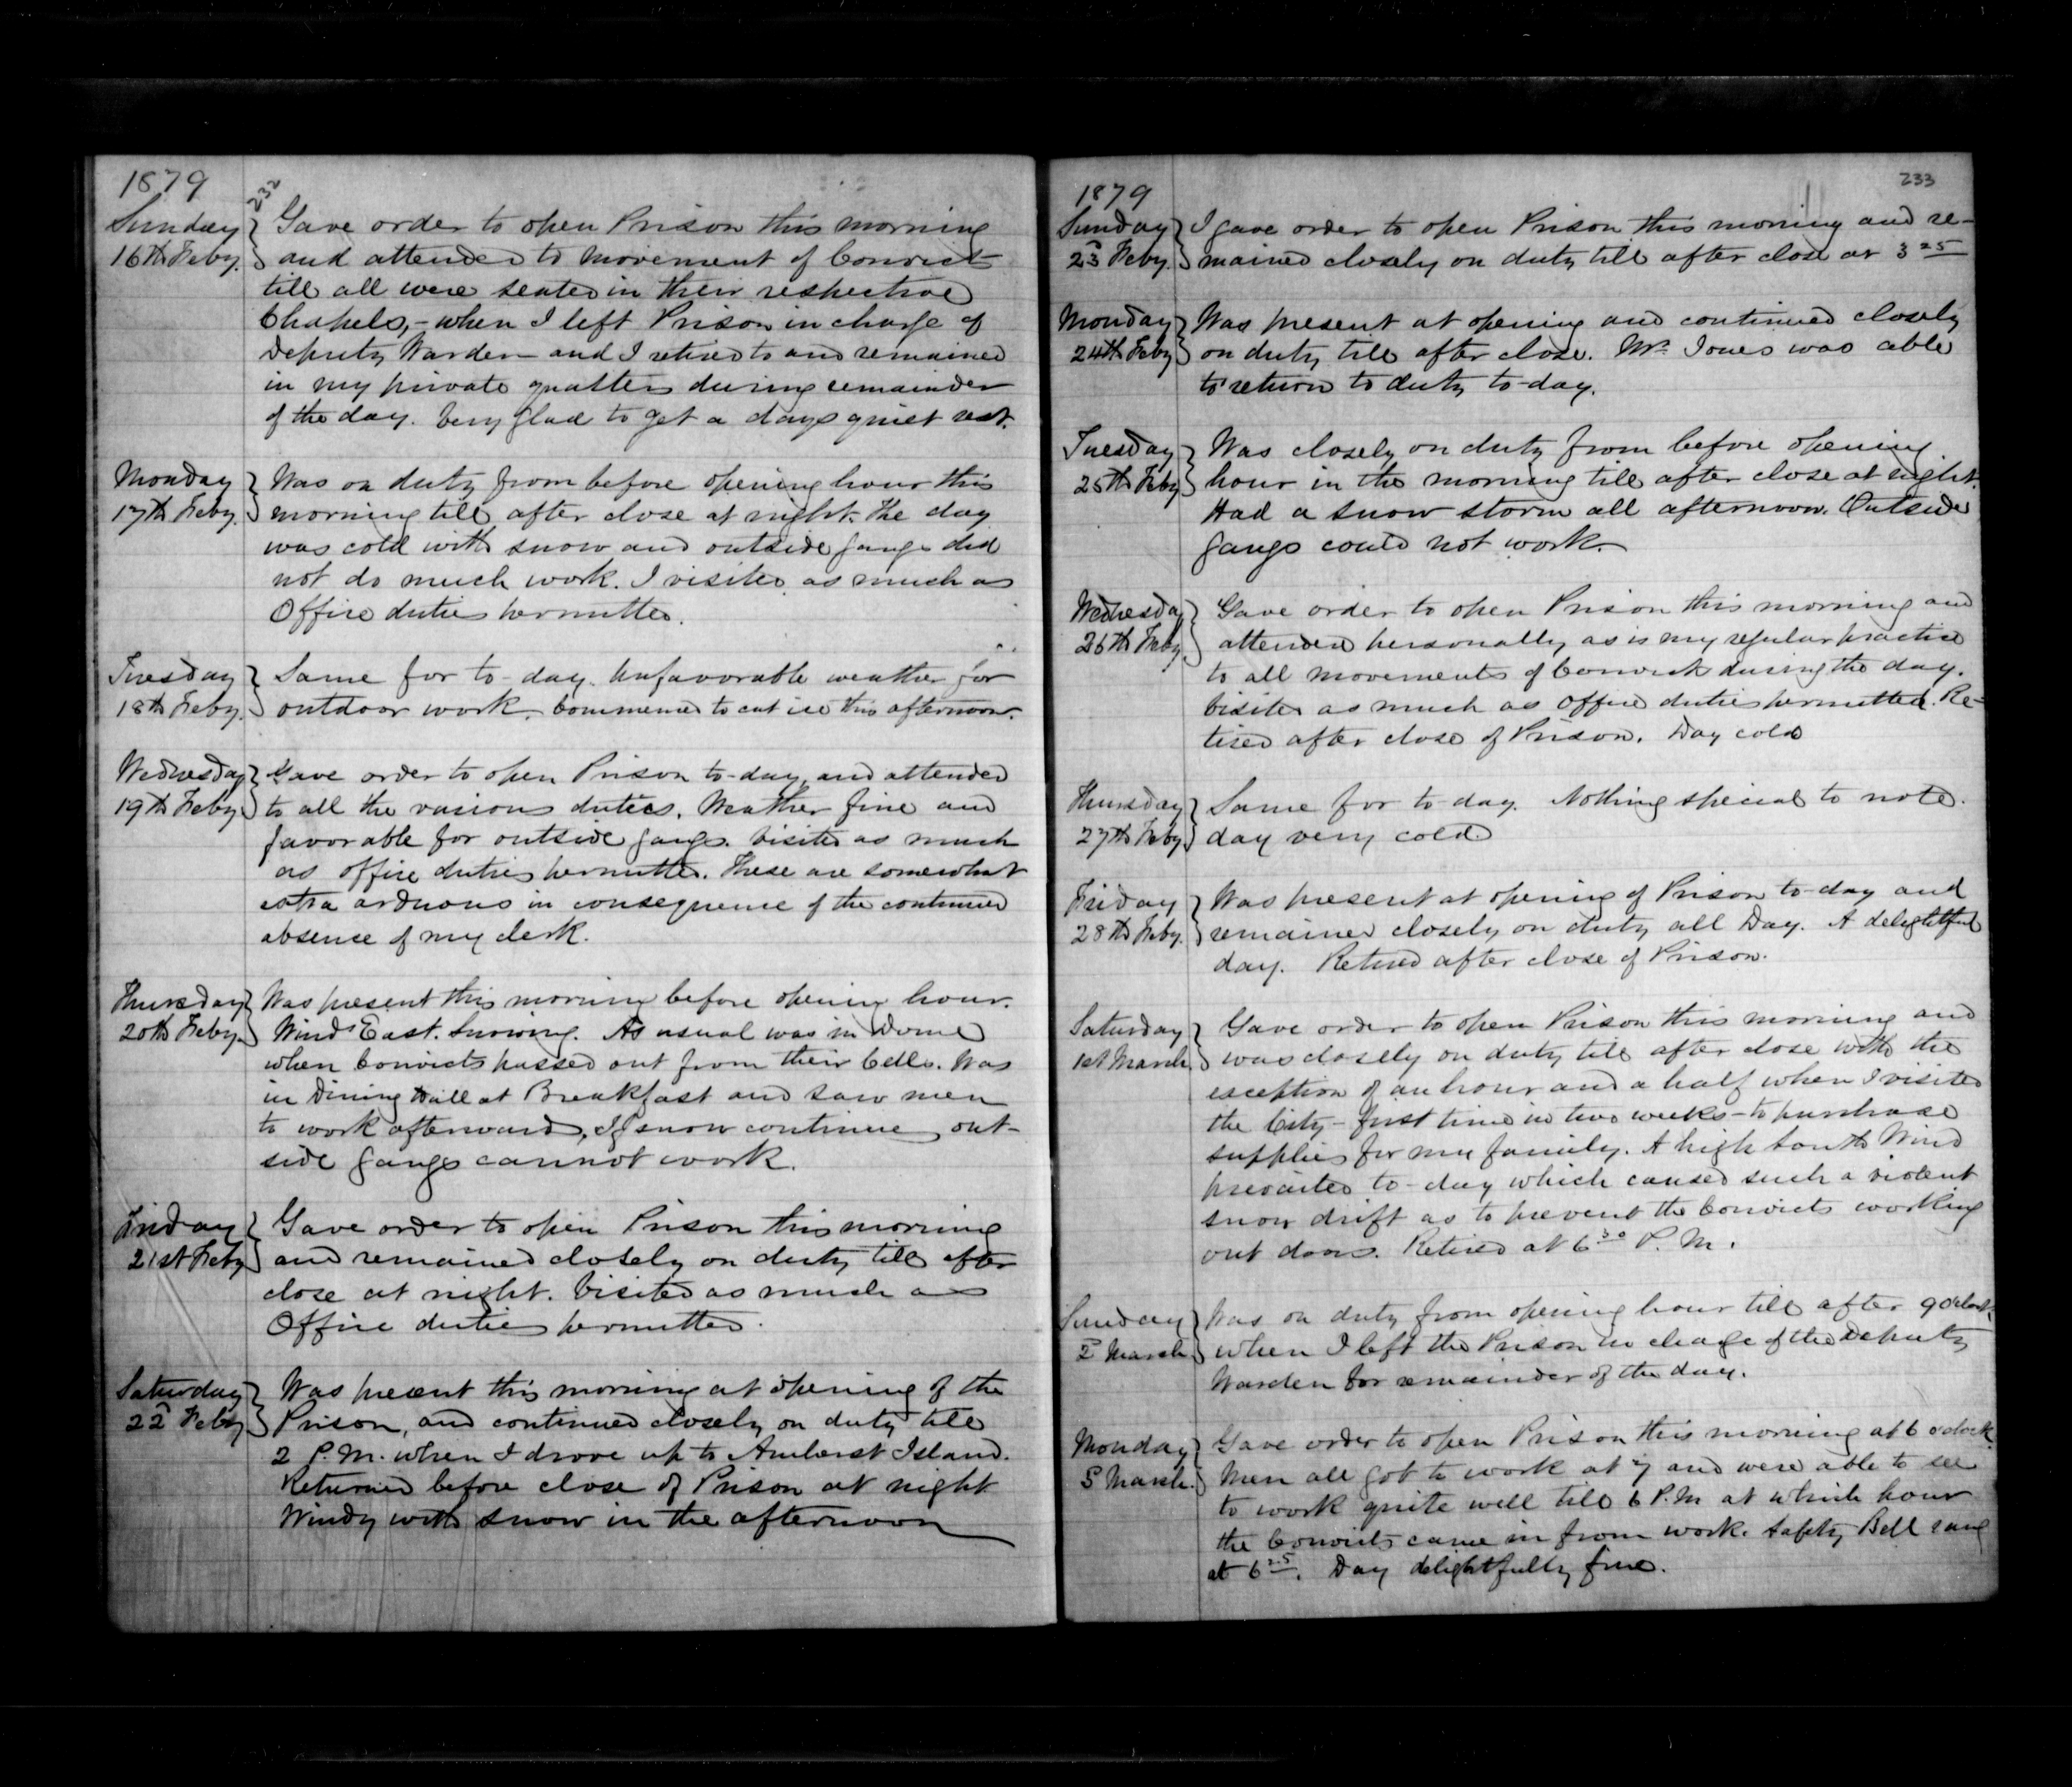 1879
232
Sunday
16th Feby.
Gave order to open Prison this morning
and attended to movement of Convicts
till all were seated in their respective
Chapels, - when I left Prison in charge of
Deputy Warden and I retired to and remained
in my private quatters during remainder
of the day. Very glad to get a days quiet rest.
Monday
17th Feby.
Was on duty from before opening hour this
morning till after close at night. The day
was cold with snow and outside gangs did
not do much work. I visited as much as
Office duties permitted.
Tuesday
18th Feby.
Same for to-day. Unfavorable weather for
outdoor work. Commenced to cut ice this afternoon.
Wednesday
19th Feby
Gave order to open Prison to-day, and attended
to all the various duties. Weather fine and
favorable for outside gangs. Visited as much
as office duties permitted. These are somewhat
extra arduous in consequence of the continued
absence of my clerk.
Thursday
20th Feby.
Was present this morning before opening hour.
Wind East. Snowing. As usual was in Dome
when Convicts passed out from their Cells. Was
in Dining Hall at Breakfast and saw men
to work afterward, If snow continue, out-
side gangs cannot work.
Friday
21st Feby
Gave order to open Prison this morning
and remained closely on duty till after
close at night. Visited as much as
Office duties permitted.
Saturday
22d Feby
Was present this morning at opening of the
Prison, and continued closely on duty till
2 P.M. when I drove up to Amherst Island.
Returned before close of Prison at night
Windy with snow in the afternoon
1879
233
Sunday
23d Feby.
I gave order to open Prison this morning and re-
mained closely on duty till after close at 3 25
Monday
24th Feby
Was present at opening and continued closely
on duty till after close. Mr. Jones was able
to return to duty to-day.
Tuesday
25th Feby
Was closely on duty from before opening
hour in the morning till after close at night.
Had a snow storm all afternoon. Outside
gangs could not work.
Wednesday
26th Feby.
Gave order to open Prison this morning and
attended personally, as is my regular practice
to all movements of Convicts during the day.
Visited as much as Office duties permitted. Re-
tired after close of Prison. Day cold
Thursday
27th Feby.
Same for to day. Nothing special to note.
day very cold
Friday
28th Feby.
Was present at opening of Prison to-day and
remained closely on duty all Day. A delightful
day. Retired after close of Prison.
Saturday
1st March.
Gave order to open Prison this morning and
was closely on duty till after close with the
exception of an hour and a half when I visited
the City - first time in two weeks - to purchase
supplies for my family. A high South Wind
prevailed to-day which caused such a violent
snow drift as to prevent the Convicts working
out doors. Retired at 6 30 P.M.
Sunday
2d March
Was on duty from opening hour till after 9 Oclock,
when I left the Prison in charge of the Deputy
Warden for remainder of the day.
Monday
3 March.
Gave order to open Prison this morning at 6 oclock.
Men all got to work at 7 and were able to see
to work quite well till 6 P.M at which hour
the Convicts came in from work. Safety Bell rang
at 6 25. Day delightfully fine.